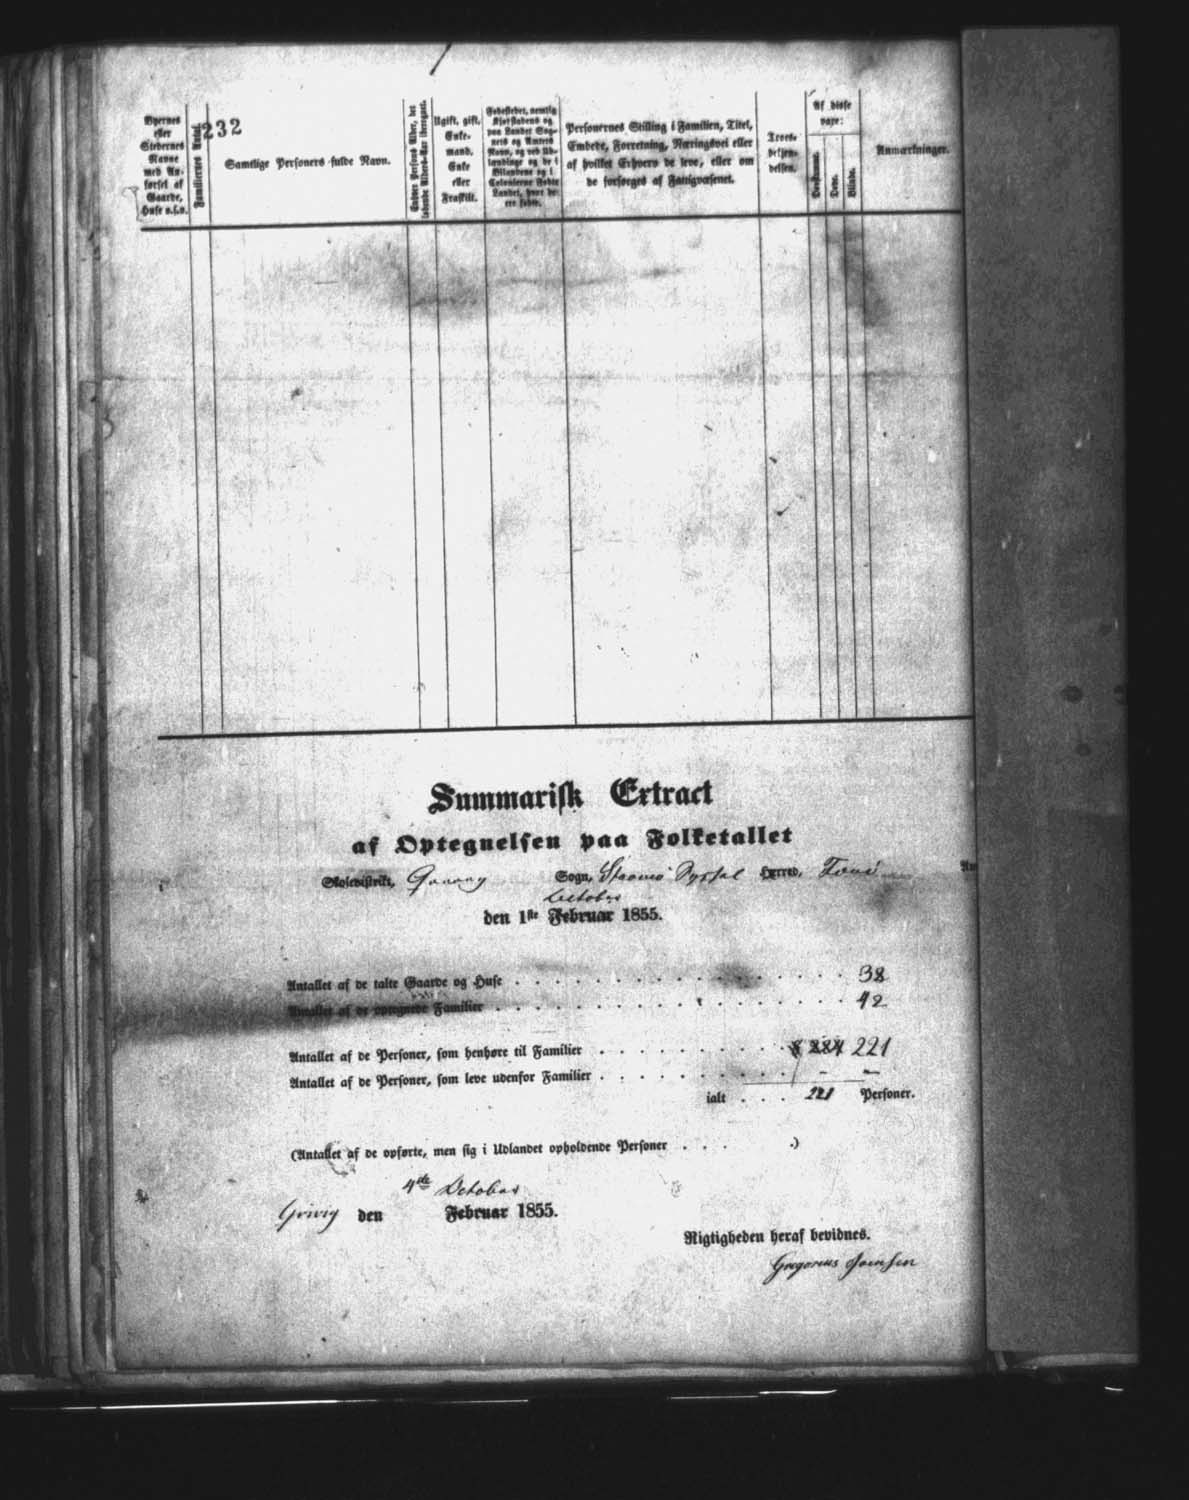 232
Byernes eller Stedernes Navne med Anførsel af Gaarde, Huse o.s.v.
Familiernes Antal.
Samtlige Personers fulde Navn.
Enhver Persons Alder, det løbende Alders-Aar iberegnet.
Ugift, gift, Enkemand, Enke eller Fraskilt.
Fødestedet, nemlig Kjøbstadens og paa Landet Sognets og Amtets Navn, og ved Udlændinge og de i Bilandene og i Colonierne Fødte Landet, hvor de ere fødte.
Personernes Stilling i Familien, Titel, Embede, Forretning, Næringsvei eller af hvilket Erhverv de leve, eller om de forsørges af Fattigvæsenet.
Troesbekjendelsen.
Af disse vare:
Døvstumme.
Døve.
Blinde.
Anmærkninger.
Summarisk Extract
af Optegnelsen paa Folketallet
Skoledistrikt, Sogn, Strømø Syssel Herred, Færø
October
den 1ste Februar 1855.
Antallet af de talte Gaarde og Huse . . . 38
Antallet af de optegnede Familier . . . 42
Antallet af de Personer, som henhøre til Familier . . . 221
Antallet af de Personer, som leve udenfor Familier . . . –
ialt . . . 221 Personer.
(Antallet af de opførte, men sig i Udlandet opholdende Personer . . . .)
4de October
den Februar 1855.
Rigtigheden heraf bevidnes.
Gregorius Joensen